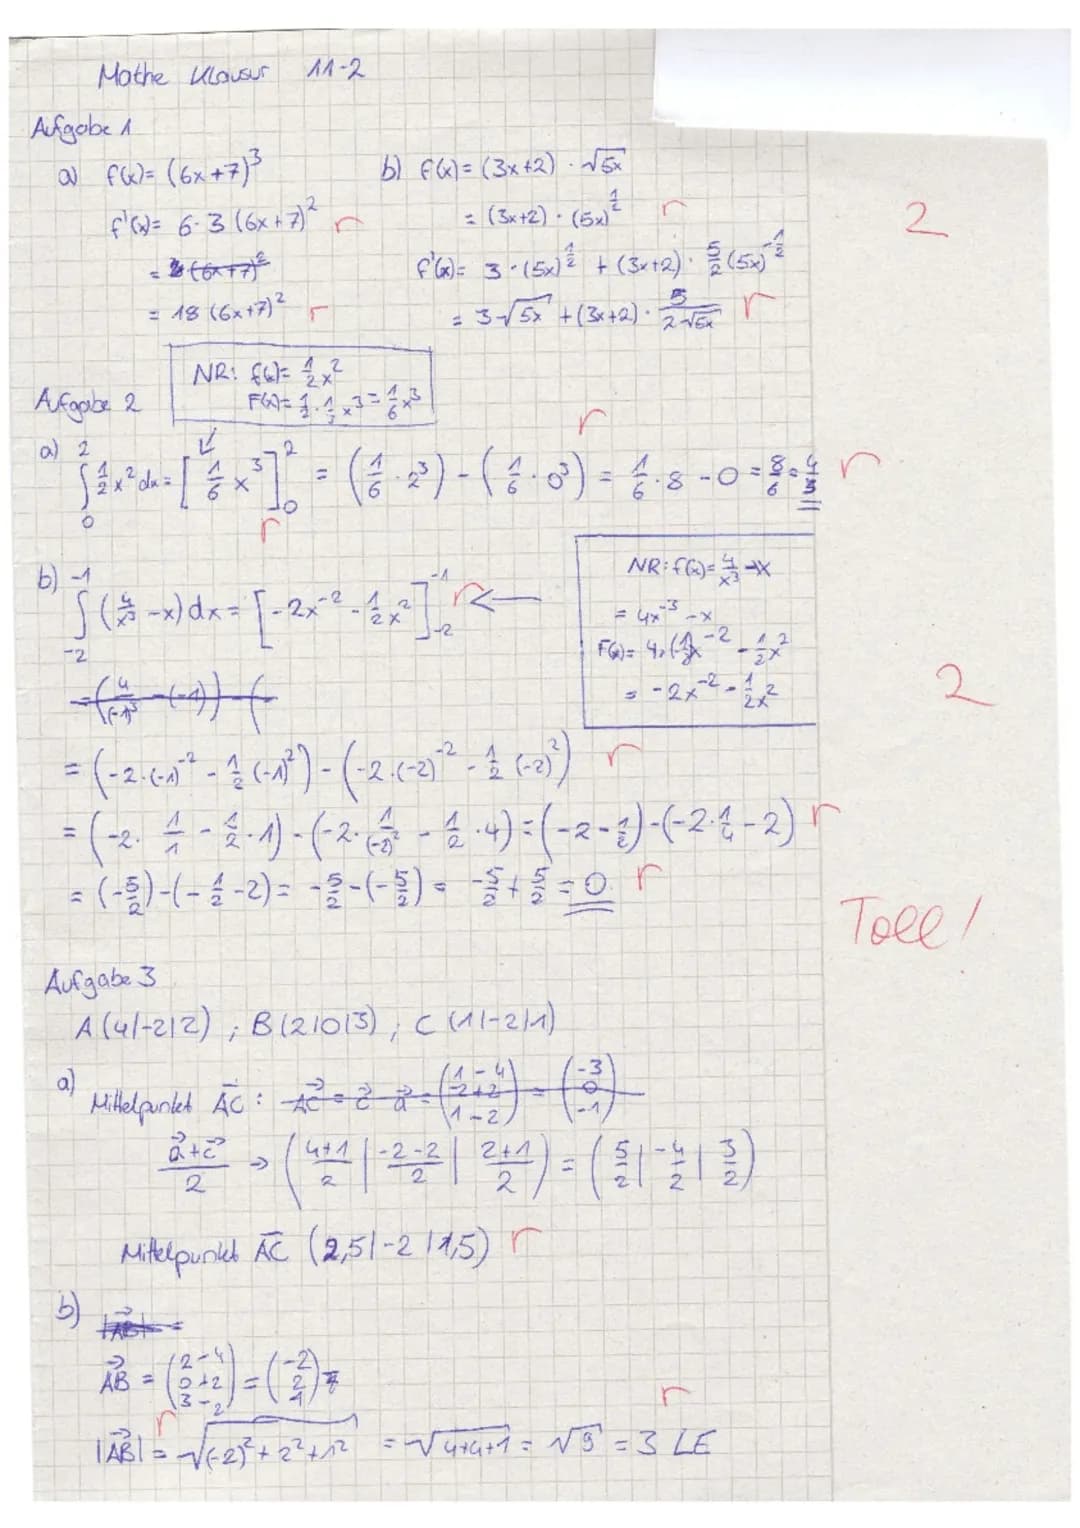 Mathe Klausur 11-2
Aufgabe 1
a) f(x)= (6x+7)³
f'(x)= 6·3 (6x+7)² r
= 18 (6x+7)² r
b) f(x)= (3x+2) · √5x
= (3x+2) · (5x)^½ r
f'(x)= 3·(5x)^½ + (3x+2)· 5/2 (5x)^-½
= 3√5x + (3x+2)· 5/(2√5x) r
2
Aufgabe 2
NR: f(x)= ½x²
F(x)= ½·⅓x³ = 1/6x³
a) ∫₀² ½x² dx = [1/6 x³]₀² = (1/6·2³) - (1/6·0³) = 1/6·8 - 0 = 8/6 = r
r
r
b) ∫₋₂⁻¹ (4/x³ -x) dx = [-2x⁻² - ½x²]₋₂⁻¹ r ←
NR: f(x)= 4/x³ -x
= 4x⁻³ -x
F(x)= 4·(-½)x⁻² - ½x²
= -2x⁻² - ½x²
= (4/(-1)³ -(-1)) - (
2
= (-2·(-1)⁻² - ½(-1)²) - (-2·(-2)⁻² - ½(-2)²) r
= (-2· 1/1 - ½·1) - (-2· 1/(-2)² - ½·4) = (-2-½)-(-2·¼-2) r
= (-5/2)-(-½-2) = -5/2-(-5/2) = -5/2+5/2 = 0 r
Toll!
Aufgabe 3
A (4|-2|2) ; B (2|0|3) ; C (1|-2|1)
a) Mittelpunkt AC: AC = c a = (1-4 -2+2 1-2) = (-3 0 -1)
(a+c)/2 → ((4+1)/2 | (-2-2)/2 | (2+1)/2) = (5/2 | -4/2 | 3/2)
Mittelpunkt AC (2,5|-2|1,5) r
b) |AB| =
AB = (2-4 0+2 3-2) = (-2 2 1)
r r
|AB| = √(-2)²+2²+1² = √4+4+1 = √9 = 3 LE